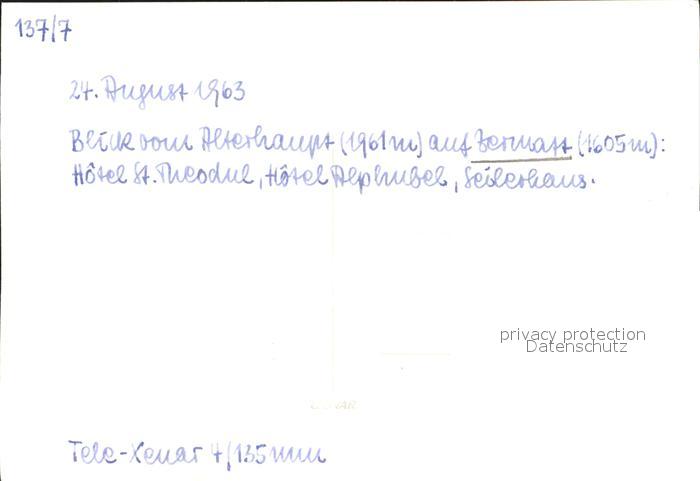 137/7
24. August 1963
Blick vom Alterhaupt (1961m) auf Zermatt (1605m):
Hôtel St. Theodul, Hôtel Alphubel, Seilerhaus.
privacy protection
Datenschutz
Tele-Xenar 4/135mm